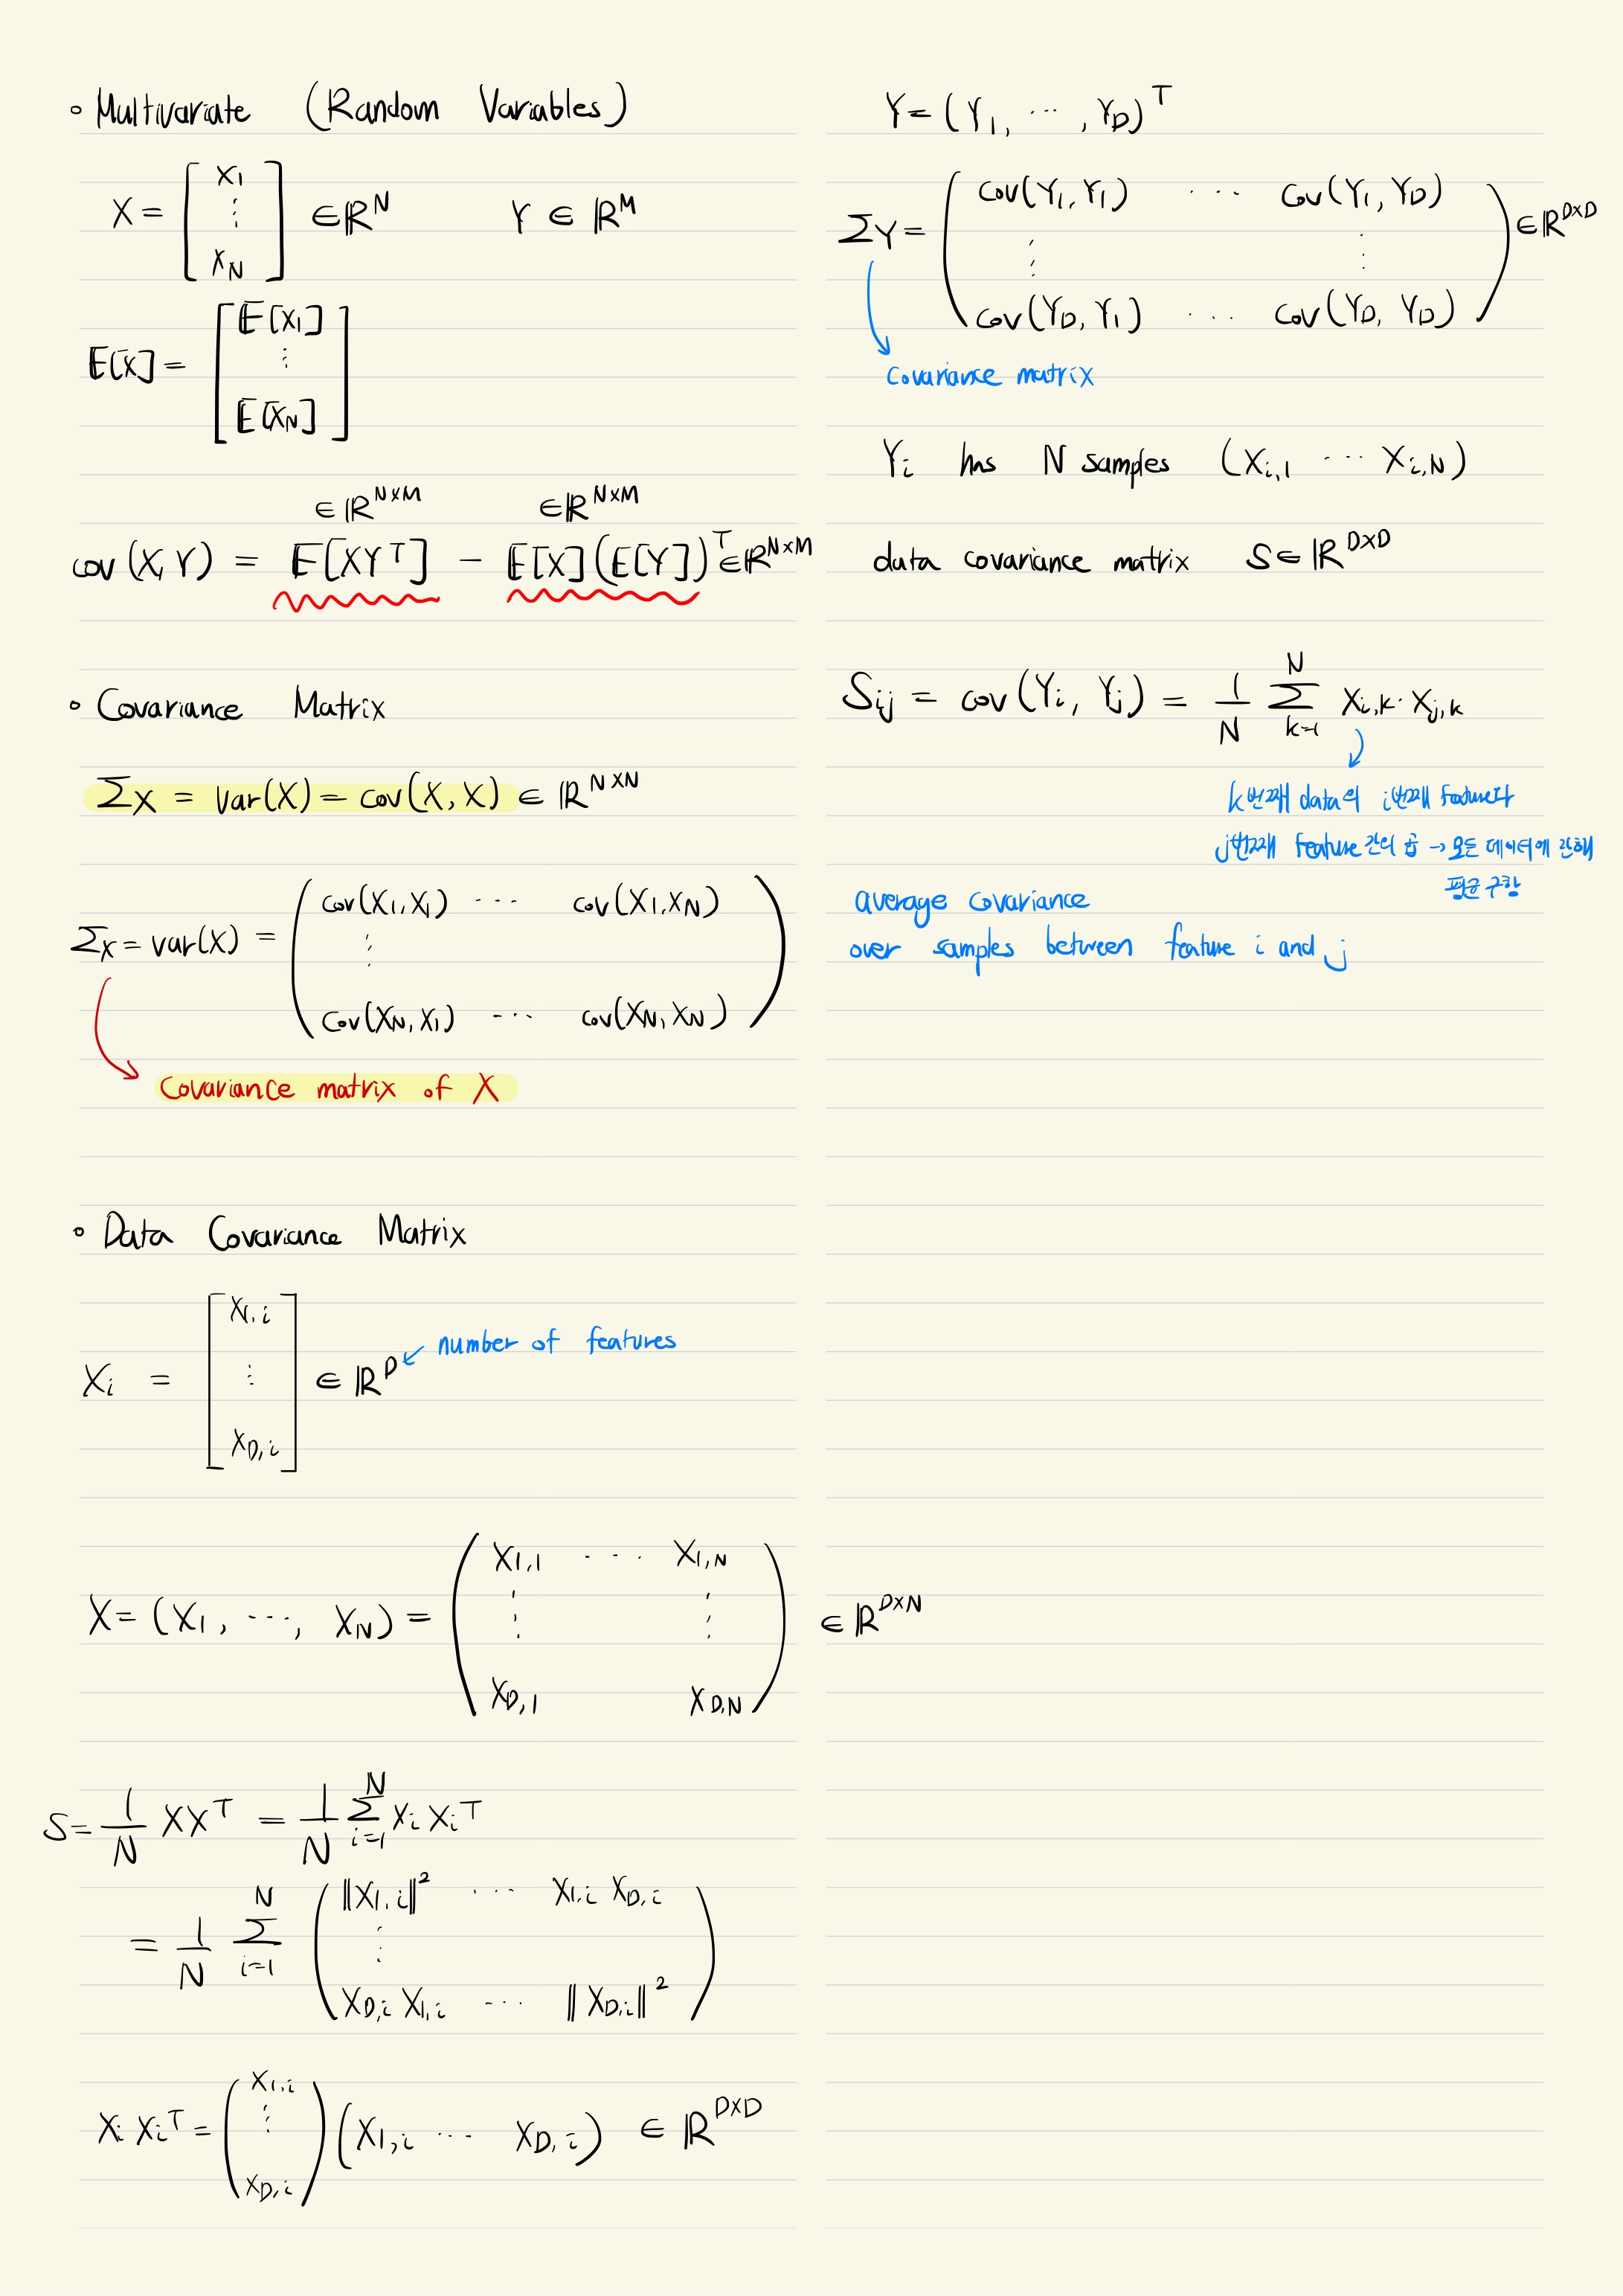 ◦ Multivariate (Random Variables)
X = [x₁ ⋮ x_N] ∈ ℝ^N    Y ∈ ℝ^M
E[X] = [E[x₁] ⋮ E[x_N]]
∈ℝ^{N×M}    ∈ℝ^{N×M}
cov(X,Y) = E[XY^T] − E[X](E[Y])^T ∈ℝ^{N×M}
◦ Covariance Matrix
Σ_X = var(X) = cov(X, X) ∈ ℝ^{N×N}
Σ_X = var(X) = ( cov(X₁,X₁) ⋯ cov(X₁,X_N)
⋮
cov(X_N,X₁) ⋯ cov(X_N,X_N) )
Covariance matrix of X
◦ Data Covariance Matrix
X_i = [X_{1,i} ⋮ X_{D,i}] ∈ ℝ^D ↙ number of features
X = (X₁, ⋯, X_N) = ( X_{1,1} ⋯ X_{1,N}
⋮ ⋮
X_{D,1} X_{D,N} ) ∈ ℝ^{D×N}
S = 1/N XX^T = 1/N Σ_{i=1}^N X_i X_i^T
= 1/N Σ_{i=1}^N ( ‖X_{1,i}‖² ⋯ X_{1,i} X_{D,i}
⋮
X_{D,i} X_{1,i} ⋯ ‖X_{D,i}‖² )
X_i X_i^T = (X_{1,i} ⋮ X_{D,i}) (X_{1,i} ⋯ X_{D,i}) ∈ ℝ^{D×D}
Y = (Y₁, ⋯, Y_D)^T
ΣY = ( cov(Y₁,Y₁) ⋯ cov(Y₁,Y_D)
⋮ ⋮
cov(Y_D,Y₁) ⋯ cov(Y_D,Y_D) ) ∈ℝ^{D×D}
Covariance matrix
Y_i has N samples (X_{i,1} ⋯ X_{i,N})
data covariance matrix S∈ℝ^{D×D}
S_{ij} = cov(Y_i, Y_j) = 1/N Σ_{k=1}^N X_{i,k}·X_{j,k}
k번째 data의 i번째 feature와
j번째 feature간의 곱 → 모든 데이터에 관해
평균 구함
average covariance
over samples between feature i and j